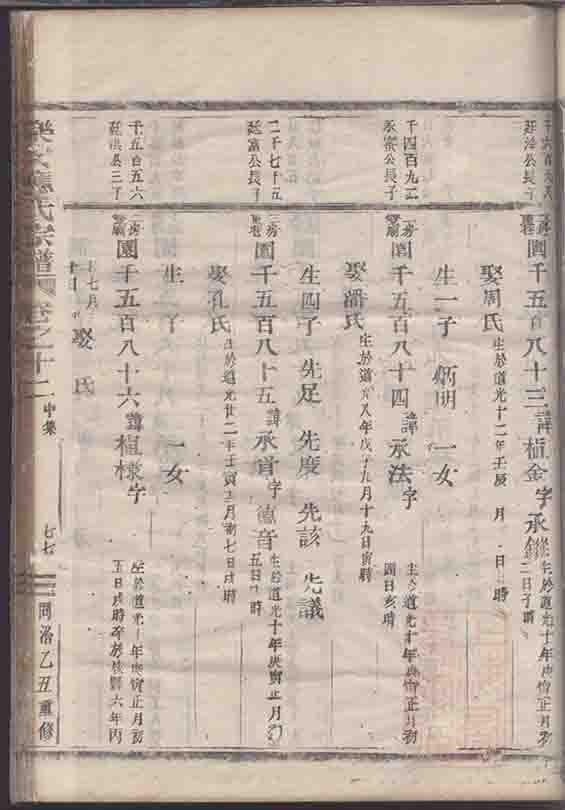 延洪公長子
園千五百八十三諱植金字承
生於道光十年庚寅正月初
二日子時
娶周氏
生於道光十二年壬辰 月 日 時
生一子 炳明 一女
千四百九二
永公長子
二房
園千五百八十四諱承法字
生於道光十年庚寅正月初
四日亥時
娶潘氏
生於道光八年戊子九月十九日寅時
生四子 先足 先度 先該 先議
二千七十五
延富公長子
房
園千五百八十五諱承首字德音
生於道光十年庚寅正月初
五日 時
娶孔氏
生於道光廿二年壬寅三月初七日戌時
生 子 一女
千五百五六
延洪公三子
二房
園千五百八十六諱植樣字
生於道光十年庚寅正月初
五日戌時卒於 六年丙
十七月
娶 氏
應氏宗譜 卷之十二
中集
七七
同治乙丑重修